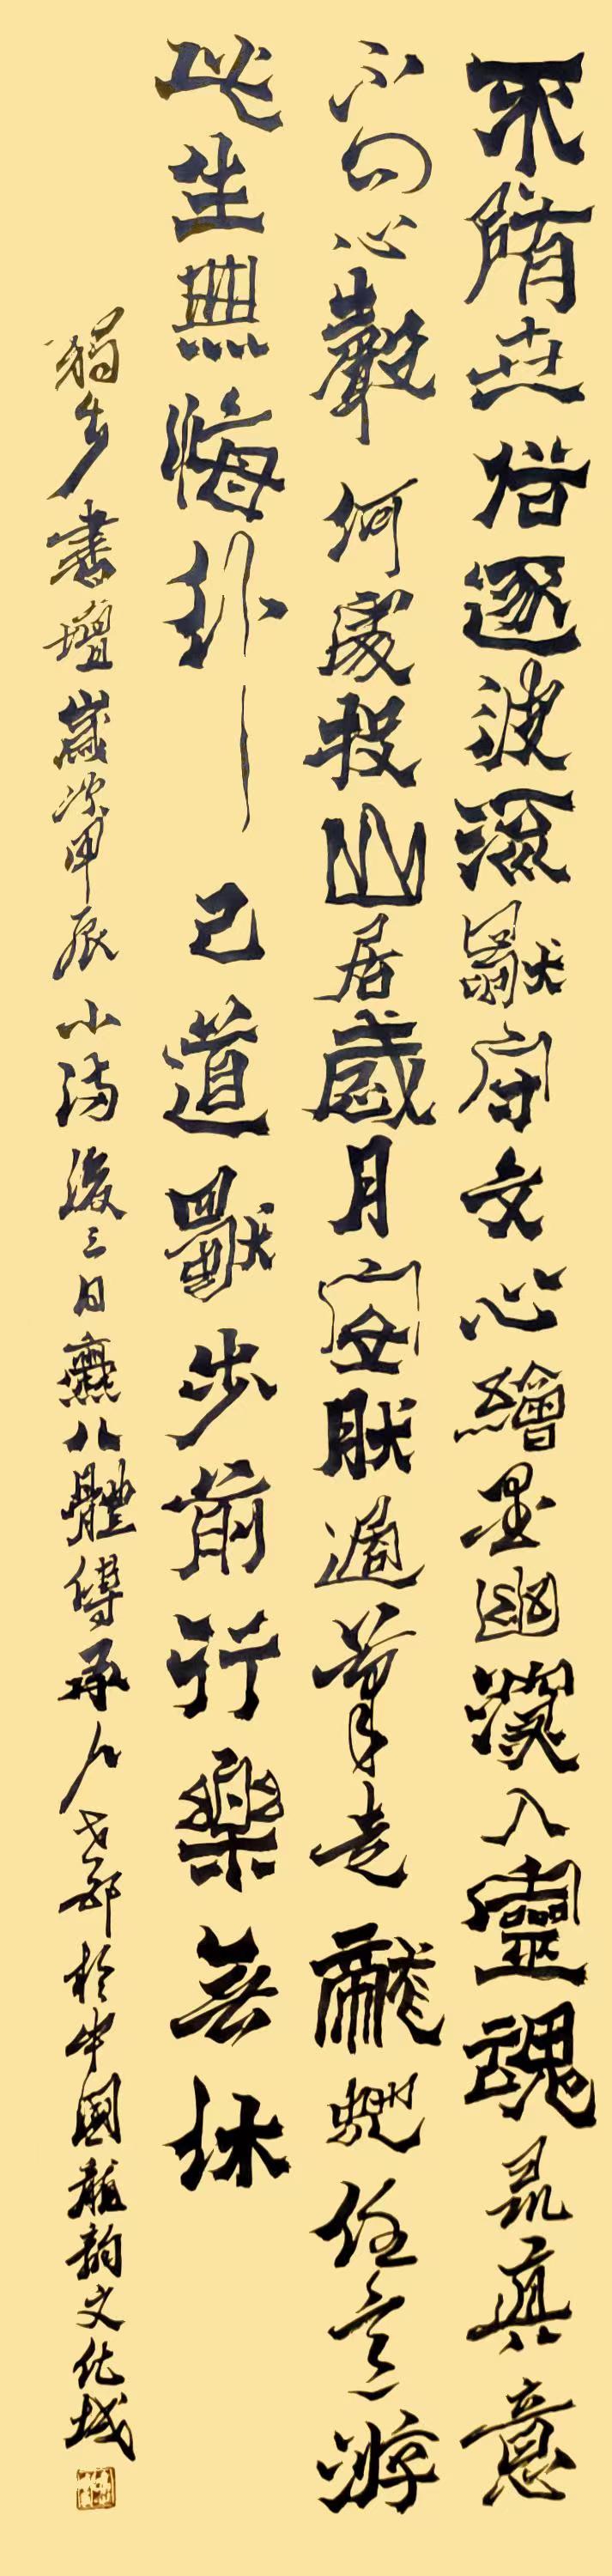 不隨世俗逐波流獨守文心繪墨幽深入靈魂真意
不心聲何處投山居歲月安然過筆走龍蛇任意游
此生無悔己道獨步前行樂無休
獨步書壇歲次甲辰小滿後三日燕八體傳承人於中國龍韵文化城